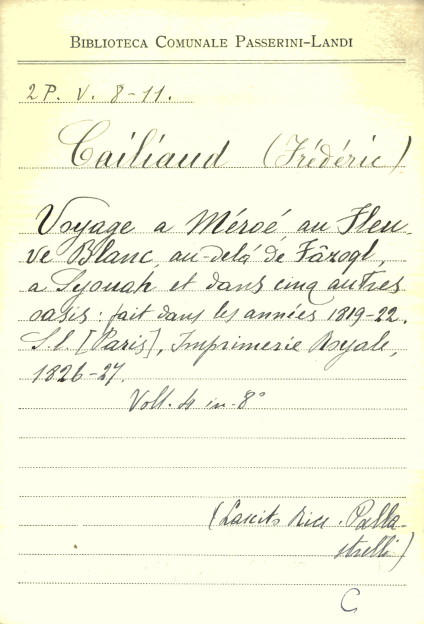 BIBLIOTECA COMUNALE PASSERINI-LANDI
2P. V. 8-11.
Cailiaud (Frédéric)
Voyage a Méroé au Fleu-
ve Blanc, au-delá de Fâzogl,
a Syouah et dans cinq autres
oasis: fait dans les années 1819-22.
S. l. [Paris], Imprimerie Royale,
1826-27.
Voll. 4 in-8°
(Lascito Ricc. Palla-
strelli)
C